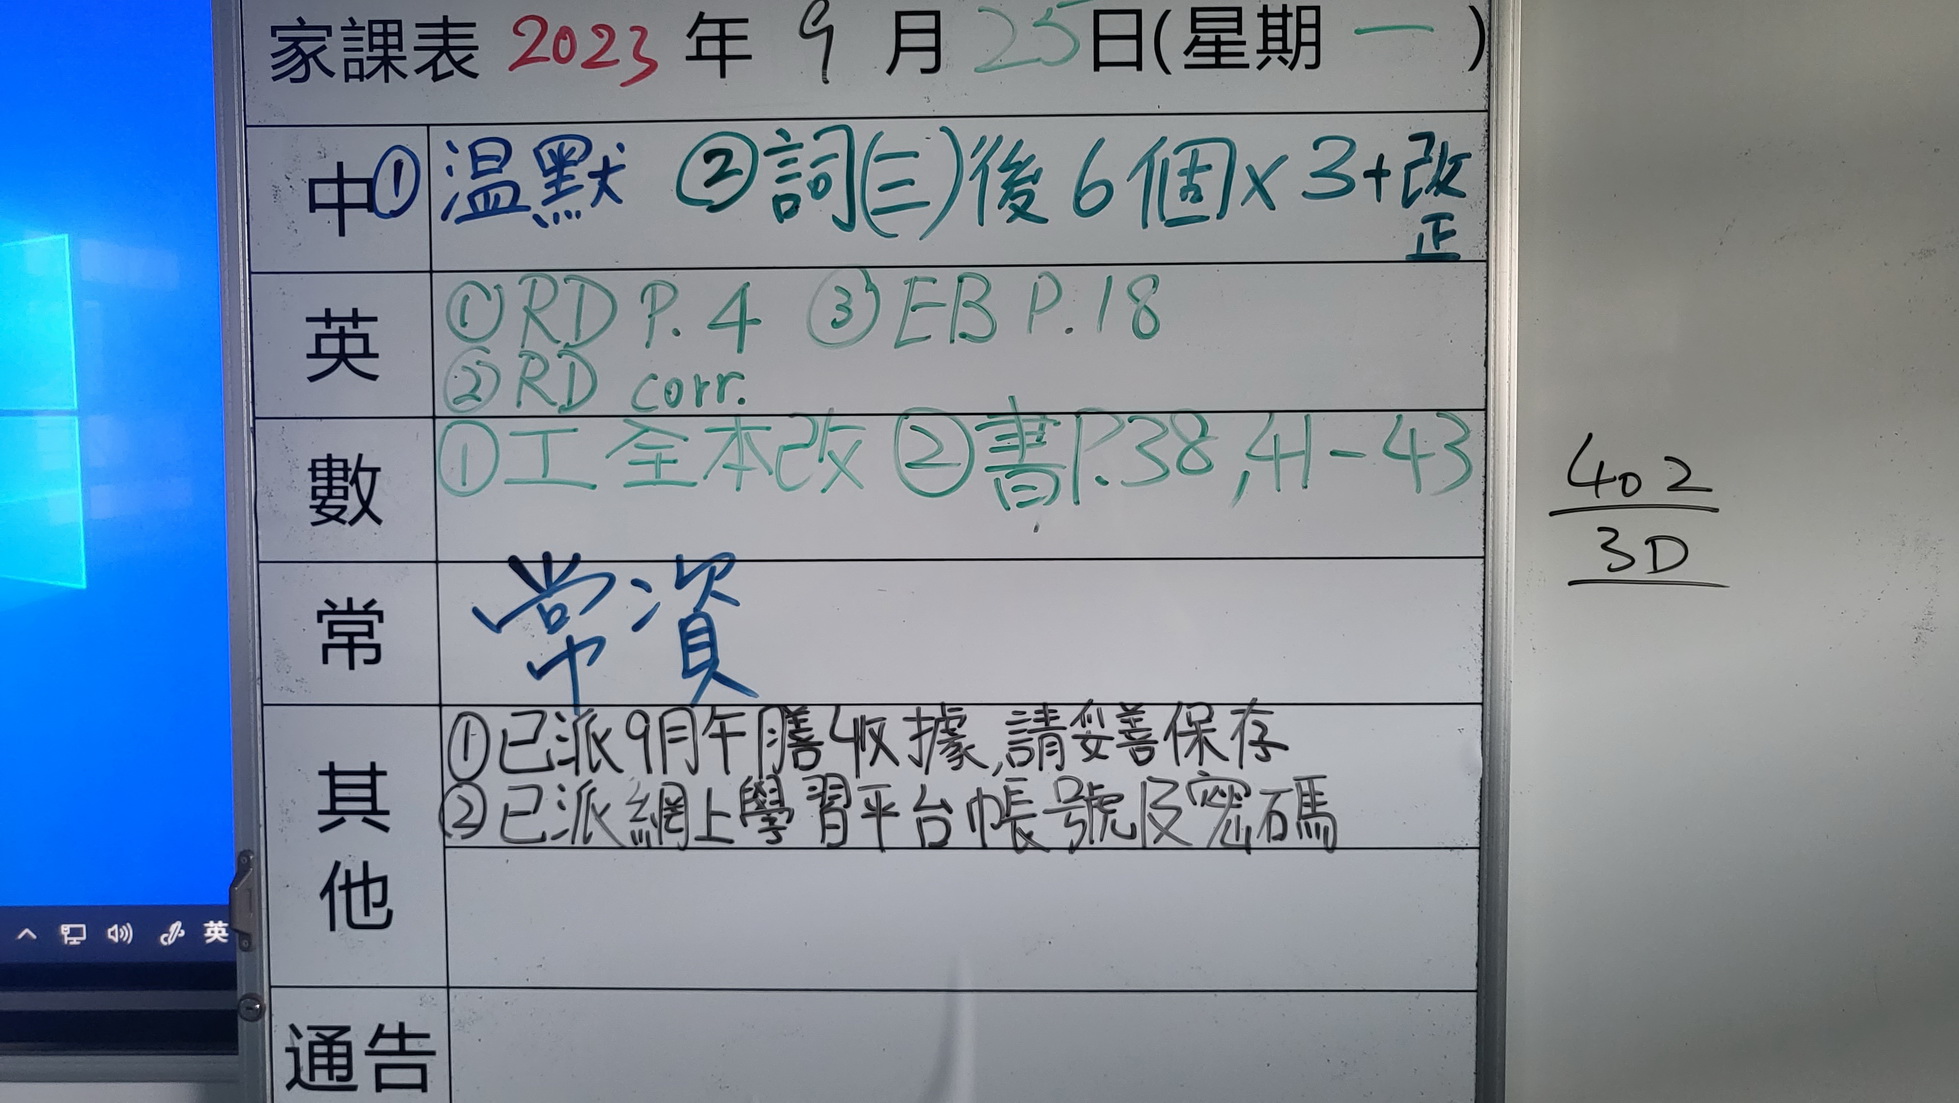 家課表 2023 年 9 月 25日(星期 一 )
中 ① 温默 ② 詞(三)後6個x3+改正
英 ① RD P.4 ③ EB P.18
② RD corr.
數 ① 工 全本改 ② 書P.38,41-43
常 常資
其他 ① 已派9月午膳收據,請妥善保存
② 已派網上學習平台帳號及密碼
通告
402
3D
英